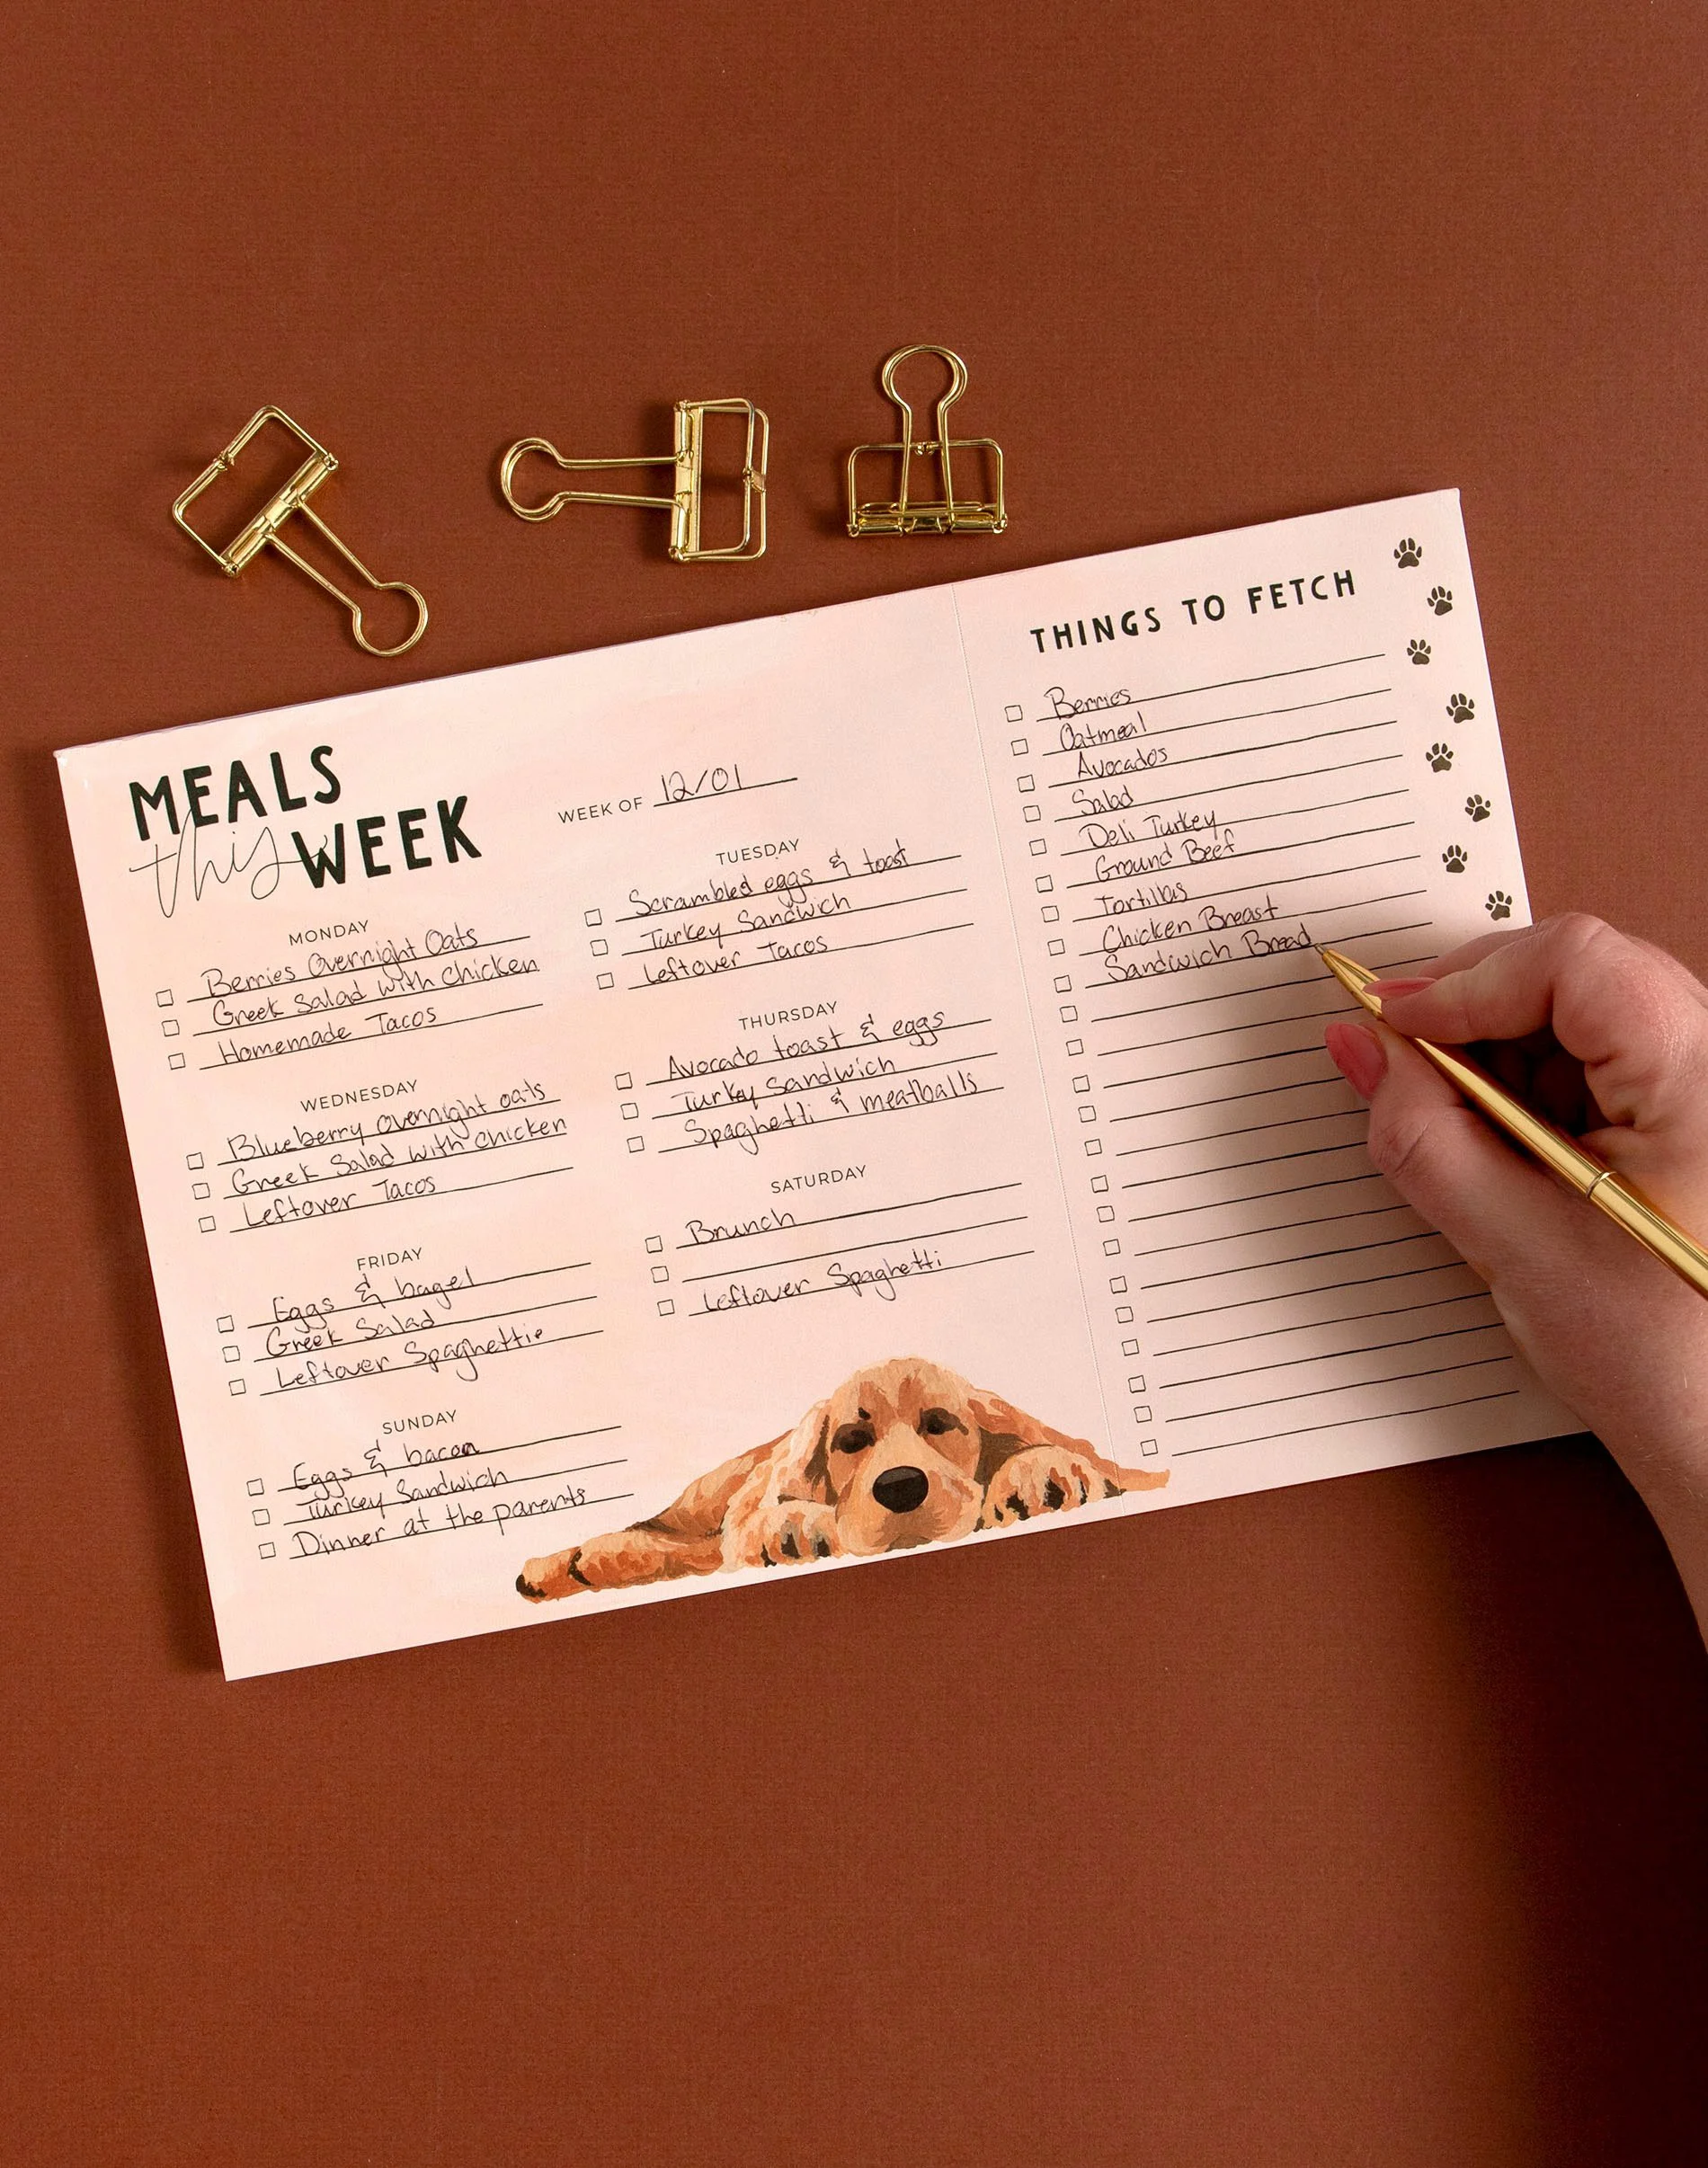 MEALS
this WEEK
WEEK OF 12/01
MONDAY
Berries Overnight Oats
Greek Salad with Chicken
Homemade Tacos
TUESDAY
Scrambled eggs & toast
Turkey Sandwich
Leftover Tacos
WEDNESDAY
Blueberry overnight oats
Greek Salad with chicken
Leftover Tacos
THURSDAY
Avocado toast & eggs
Turkey Sandwich
Spaghetti & meatballs
FRIDAY
Eggs & bagel
Greek Salad
Leftover Spaghettie
SATURDAY
Brunch
Leftover Spaghetti
SUNDAY
Eggs & bacon
Turkey Sandwich
Dinner at the parents
THINGS TO FETCH
Berries
Oatmeal
Avocados
Salad
Deli Turkey
Ground Beef
Tortillas
Chicken Breast
Sandwich Bread